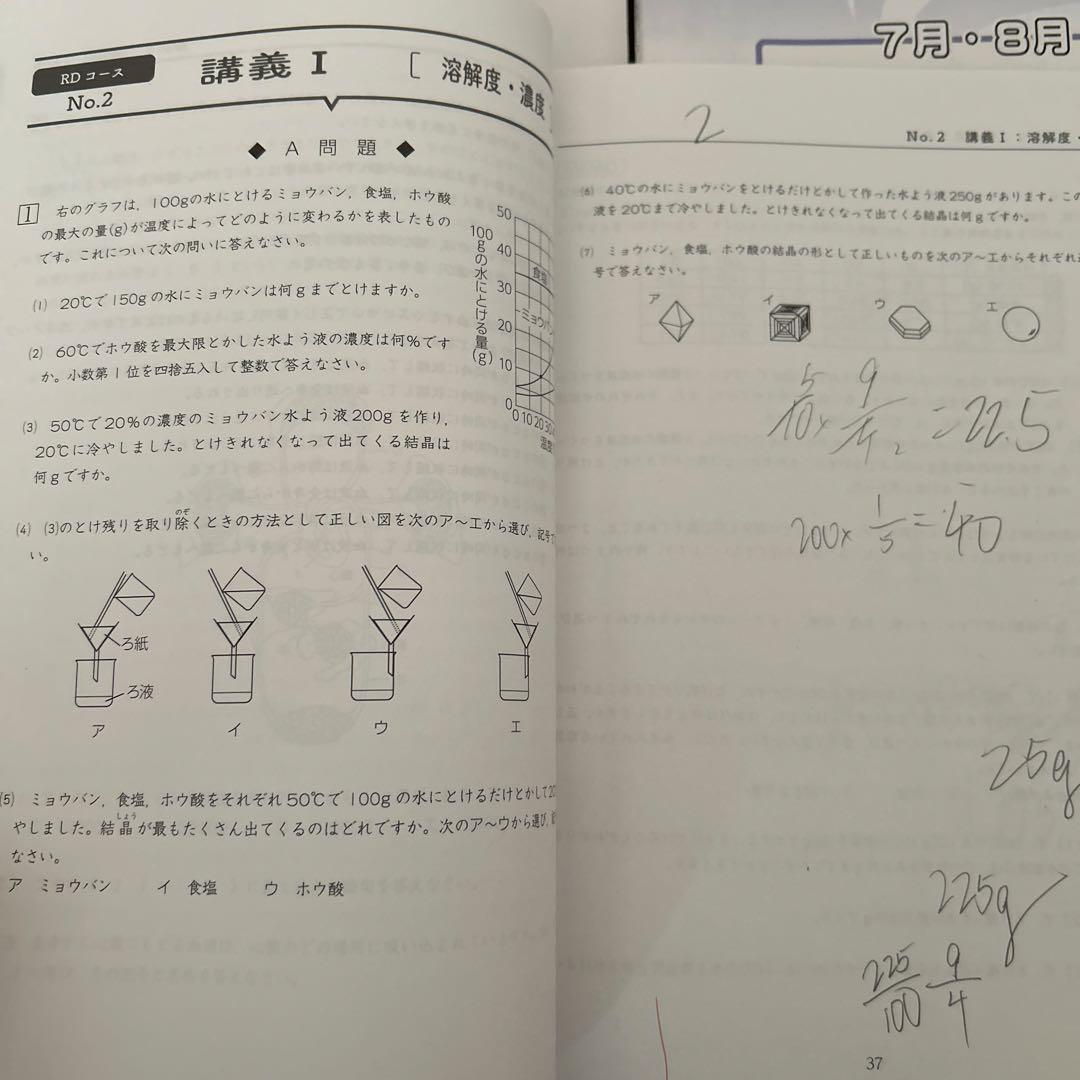 RDコース
No.2
講義Ⅰ
[ 溶解度・濃度
◆ A 問 題 ◆
1 右のグラフは,100gの水にとけるミョウバン,食塩,ホウ酸
の最大の量(g)が温度によってどのように変わるかを表したもの
です。これについて次の問いに答えなさい。
(1) 20℃で150gの水にミョウバンは何gまでとけますか。
(2) 60℃でホウ酸を最大限とかした水よう液の濃度は何%です
か。小数第1位を四捨五入して整数で答えなさい。
(3) 50℃で20%の濃度のミョウバン水よう液200gを作り,
20℃に冷やしました。とけきれなくなって出てくる結晶は
何gですか。
100gの水にとける量(g)
50
40
30
20
10
0
食塩
ミョウバン
0 10 20 30
温度
(4) (3)のとけ残りを取り除くときの方法として正しい図を次のア〜エから選び,記号で
のぞ
い。
ろ紙
ろ液
ア
イ
ウ
エ
(5) ミョウバン,食塩,ホウ酸をそれぞれ50℃で100gの水にとけるだけとかして20
やしました。結晶が最もたくさん出てくるのはどれですか。次のア〜ウから選び,
しょう
なさい。
ア ミョウバン イ 食塩 ウ ホウ酸
7月・8月
2
No.2 講義Ⅰ:溶解度・
(6) 40℃の水にミョウバンをとけるだけとかして作った水よう液250gがあります。この
液を20℃まで冷やしました。とけきれなくなって出てくる結晶は何gですか。
(7) ミョウバン,食塩,ホウ酸の結晶の形として正しいものを次のア〜エからそれぞれ
号で答えなさい。
ア
イ
ウ
エ
=22.5
200×1/5=40
25g
225g
225/100 9/4
37